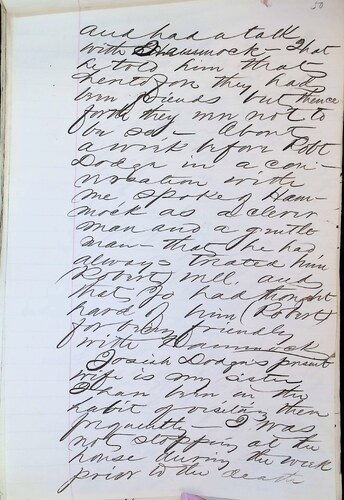 53
and had a talk
with Hammock - That
he told him that
heretofore they had
been friends but thence
forth they were not to
be so - About
a week before Robt
Dodge in a con-
versation with
me spoke of Ham-
mock as a clever
man and a gentle
man - that he had
always treated him
(Robert) well, and
that Jo had thought
hard of him (Robert)
for being friendly
with Hammock
Josiah Dodge's present
wife is my sister
I have been in the
habit of visiting them
frequently - I was
not stopping at the
house during the week
prior to the death